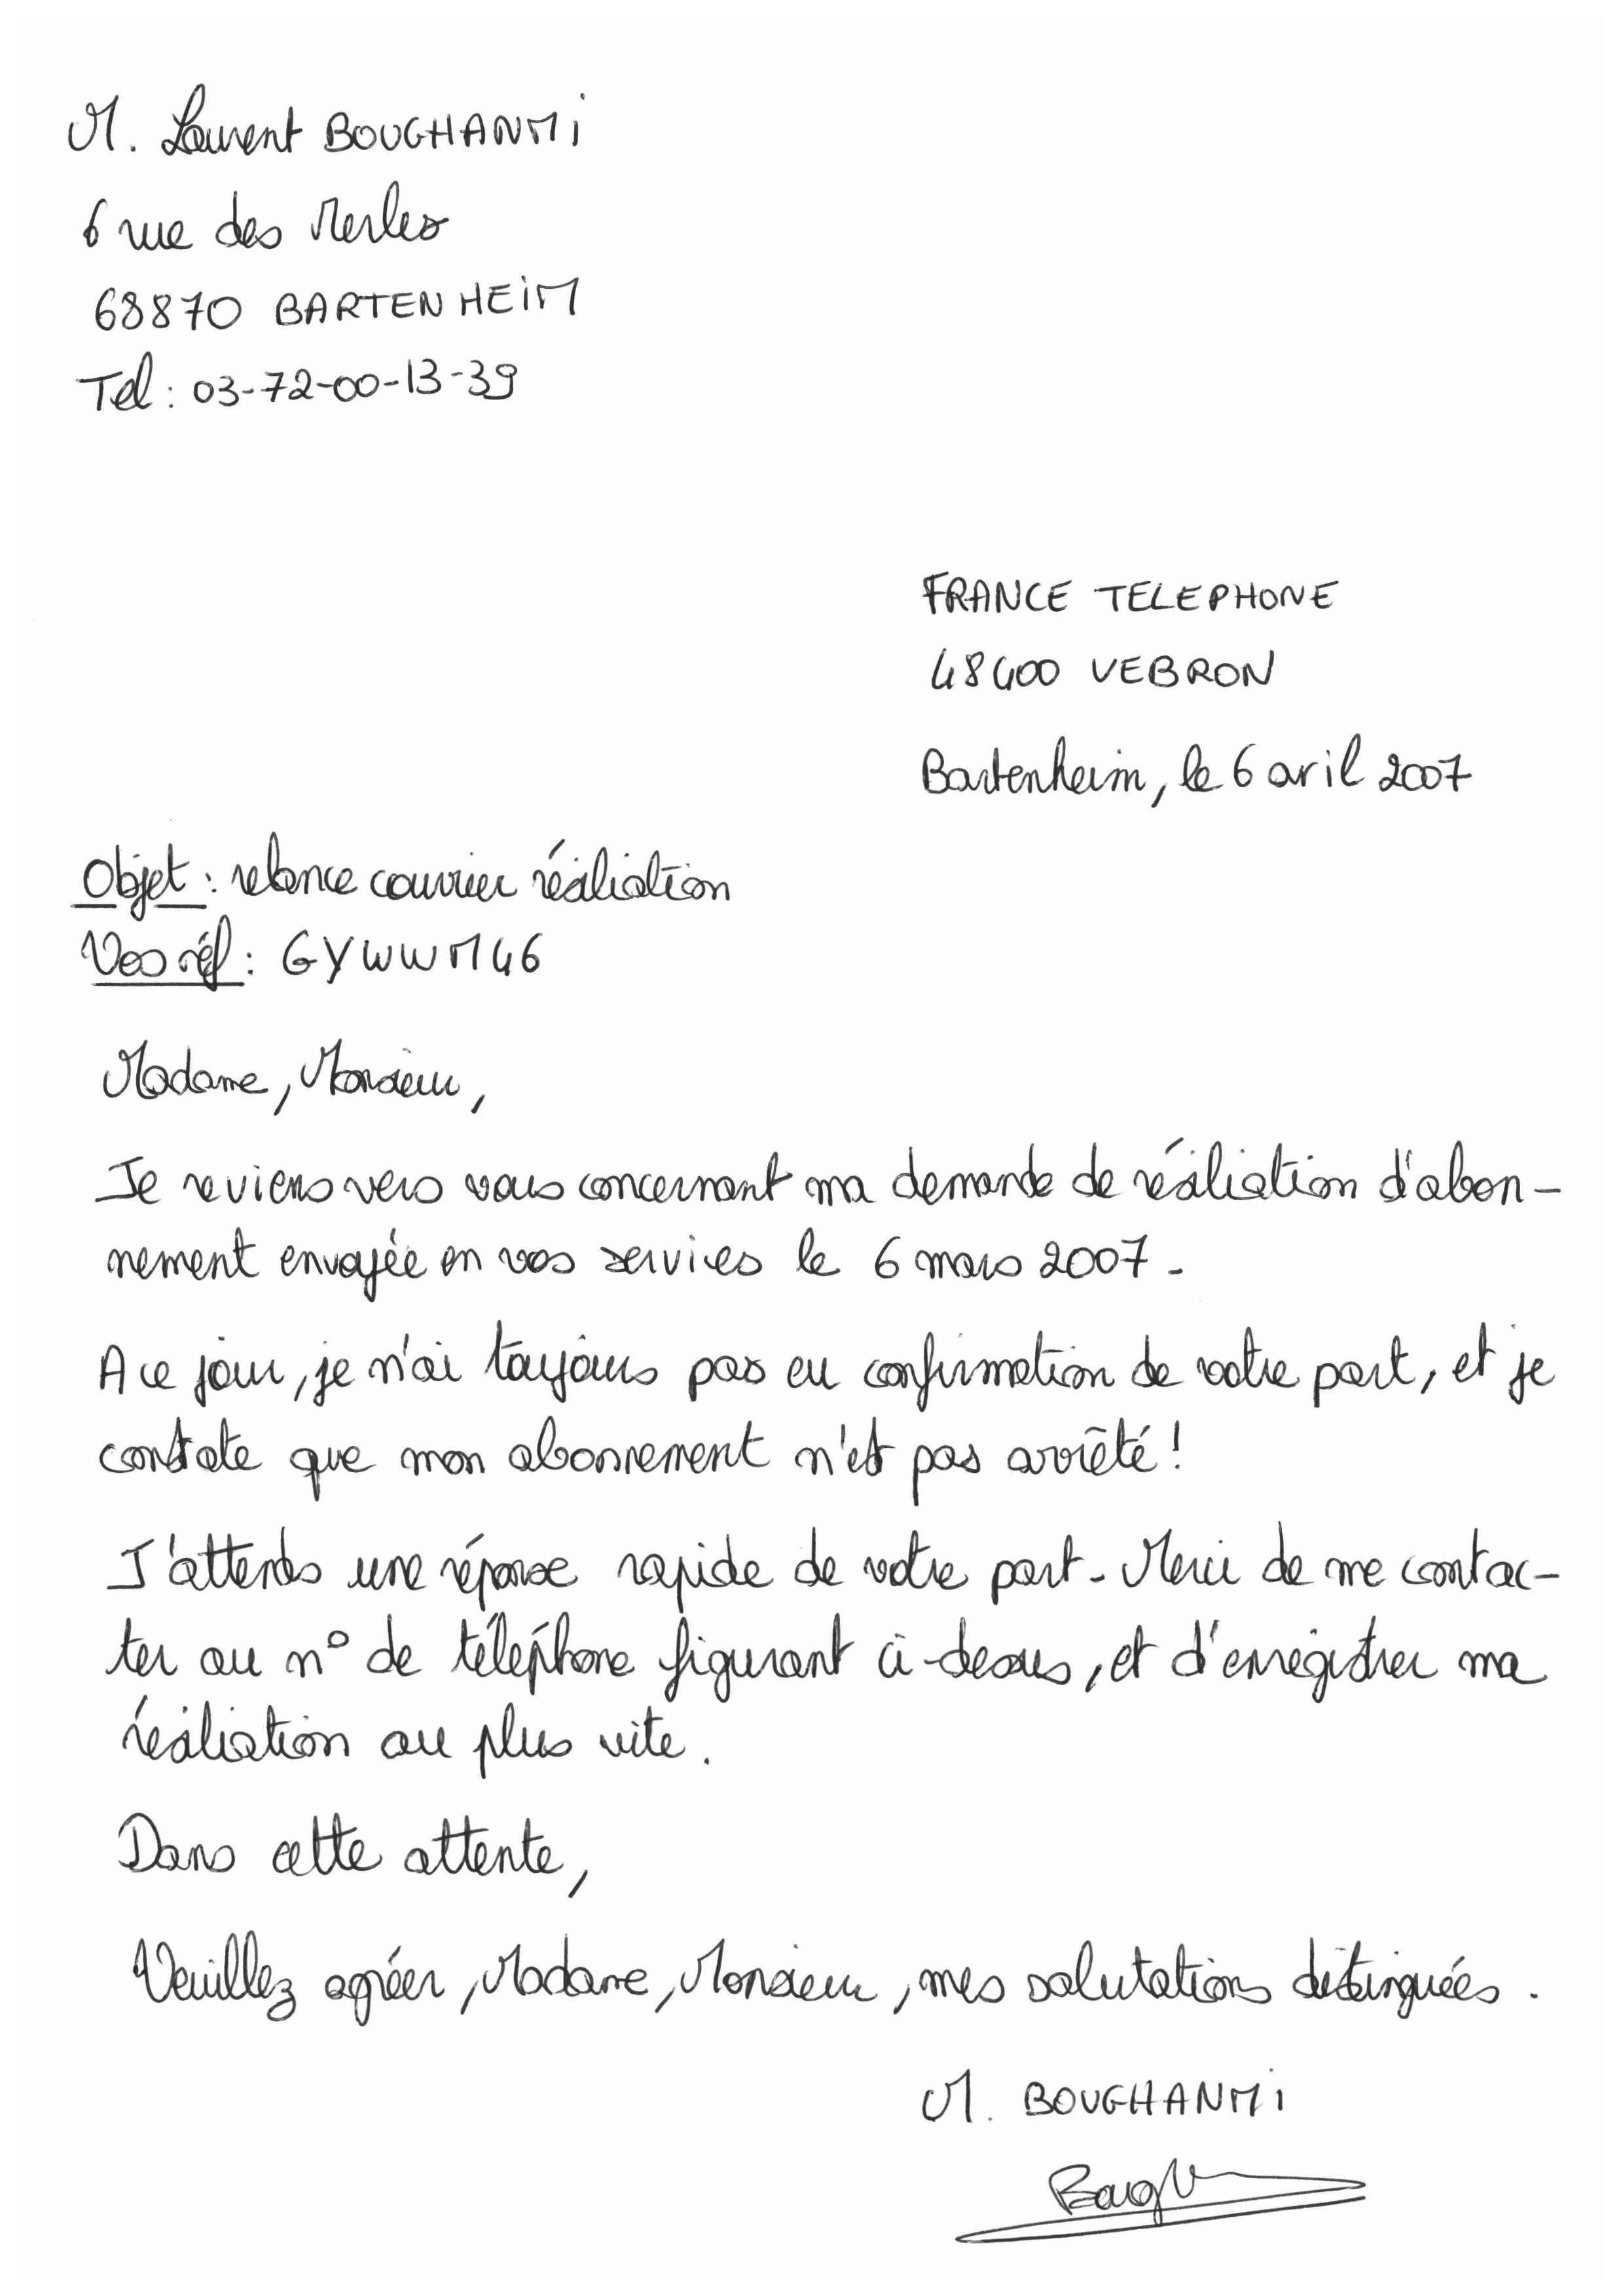 M. Laurent BOUGHANMi
6 rue des Merles
68870 BARTENHEiM
Tel : 03-72-00-13-39
FRANCE TELEPHONE
48400 VEBRON
Bartenheim, le 6 avril 2007
Objet : relance courrier résiliation
Vos réf : GYWWM46
Madame, Monsieur,
Je reviens vers vous concernant ma demande de résiliation d'abon-
nement envoyée en vos services le 6 mars 2007.
A ce jour, je n'ai toujours pas eu confirmation de votre part, et je
constate que mon abonnement n'est pas arrêté !
J'attends une réponse rapide de votre part. Merci de me contac-
ter au n° de téléphone figurant ci-dessus, et d'enregistrer ma
résiliation au plus vite.
Dans cette attente,
Veuillez agréer, Madame, Monsieur, mes salutations distinguées.
M. BOUGHANMi